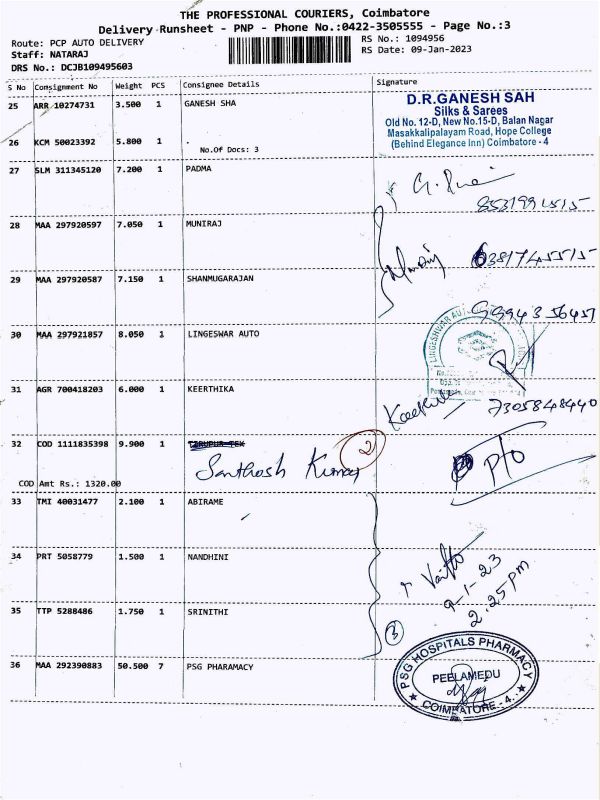 THE PROFESSIONAL COURIERS, Coimbatore
Delivery Runsheet - PNP - Phone No.:0422-3505555 - Page No.:3
Route: PCP AUTO DELIVERY
Staff: NATARAJ
DRS No.: DCJB109495603
RS No.: 1094956
RS Date: 09-Jan-2023
S No Consignment No Weight PCS Consignee Details Signature
25 ARR 10274731 3.500 1 GANESH SHA
D.R.GANESH SAH
Silks & Sarees
Old No. 12-D, New No.15-D, Balan Nagar
Masakkalipalayam Road, Hope College
(Behind Elegance Inn) Coimbatore - 4
26 KCM 50023392 5.800 1 .
No.Of Docs: 3
27 SLM 311345120 7.200 1 PADMA
8531991515
28 MAA 297920597 7.050 1 MUNIRAJ
6381745515
29 MAA 297920587 7.150 1 SHANMUGARAJAN
9994356451
30 MAA 297921857 8.050 1 LINGESWAR AUTO
LINGESHWAR AUTO
31 AGR 700418203 6.000 1 KEERTHIKA
7305848440
32 COD 1111835398 9.900 1 TIRUPUR TEX
2
Santhosh Kumar
P/O
COD Amt Rs.: 1320.00
33 TMI 40031477 2.100 1 ABIRAME
34 PRT 5058779 1.500 1 NANDHINI
9-1-23
2.25pm
35 TTP 5288486 1.750 1 SRINITHI
3
36 MAA 292390883 50.500 7 PSG PHARAMACY
PSG HOSPITALS PHARMACY
PEELAMEDU
COIMBATORE - 4.